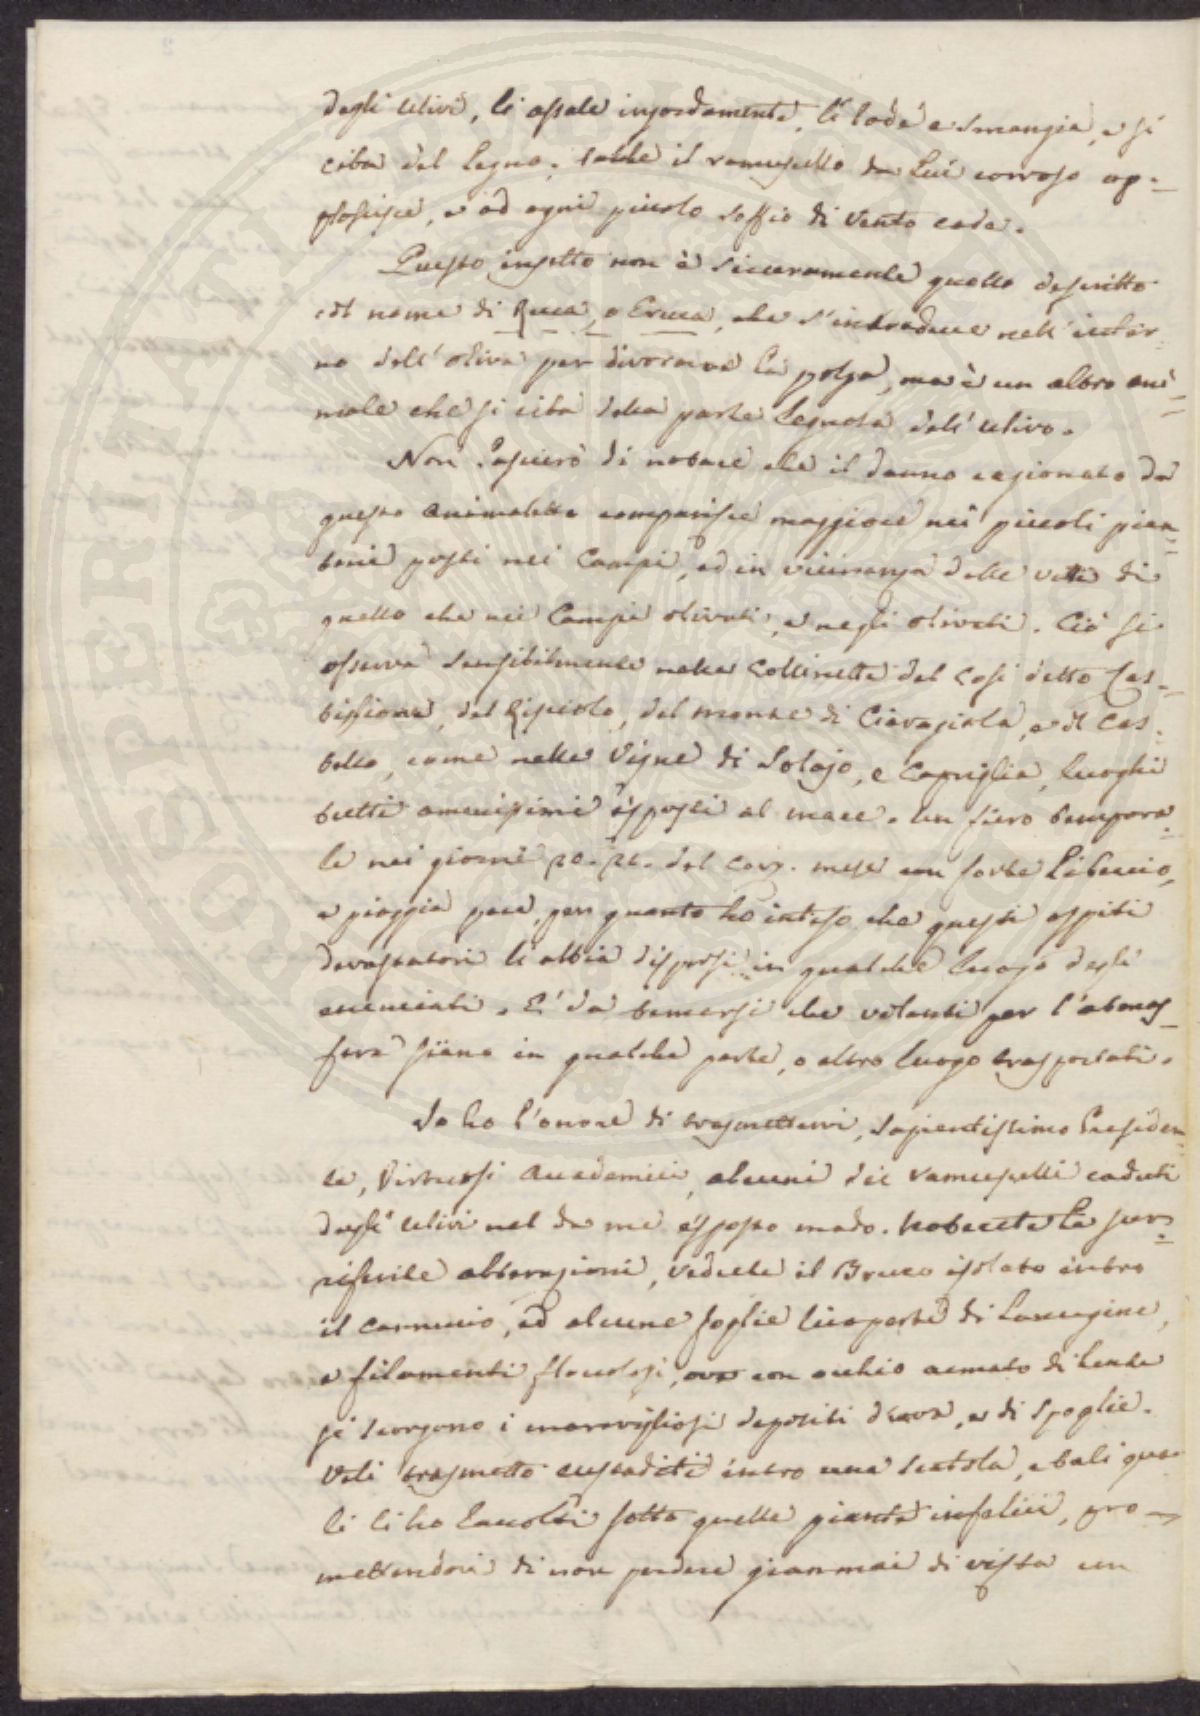 degli Ulivi, li assale ingordamente, li rode e smangia, e si
ciba del legno; talche il ramuscello da Lui corroso ap-
passisce, e ad ogni piccolo soffio di vento cade.
Questo insetto non è siccuramente quello descritto
col nome di Ruca, o Eruca, che s'introduce nell'inter=
no dell'oliva per divorarne la polpa, ma è un altro ani=
male che si ciba della parte legnosa dell'ulivo.
Non lascierò di notare che il danno cagionato da
questo animaletto comparisce maggiore nei piccoli pian=
toni posti nei Campi, ed in vicinanza delle viti di
quello che nei Campi olivati, e negli oliveti. Ciò si
osserva sensibilmente nelle Collinette del così detto Cas=
tiglione, del Ripiolo, del monte di Ciavagiola, e il Cas=
tello, come nelle Vigne di Solajo, e Capriglia, luoghi
tutti amenissimi esposti al mare. Un fiero tempora=
le nei giorni 20. 21. del corr. mese con forte Libeccio,
e pioggia pare, per quanto ho inteso che questi ospiti
devastatori li abbia dispersi in qualche luogo degli
enunciati. E' da temersi che volanti per l'atmos=
fera siano in qualche parte, o altro luogo trasportati.
Io ho l'onore di trasmettervi, Sapientissimo Presiden=
te, Virtuosi Accademici, alcuni dei ramuscelli caduti
dagli Ulivi nel da me esposto modo. Noterete la super=
ficiale alterazioni, vedrete il Bruco isolato entro
il cannuccio, ed alcune foglie ricoperte di Lanugine,
e filamenti floccolosi, ove con occhio armato di lente
si scorgono i maravigliosi depositi d'uova, e di spoglie.
Veli trasmetto custoditi entro una scatola, e tali qua=
li li ho raccolti sotto quelle piante infelici, pro=
mettendovi di non perdere giammai di vista un